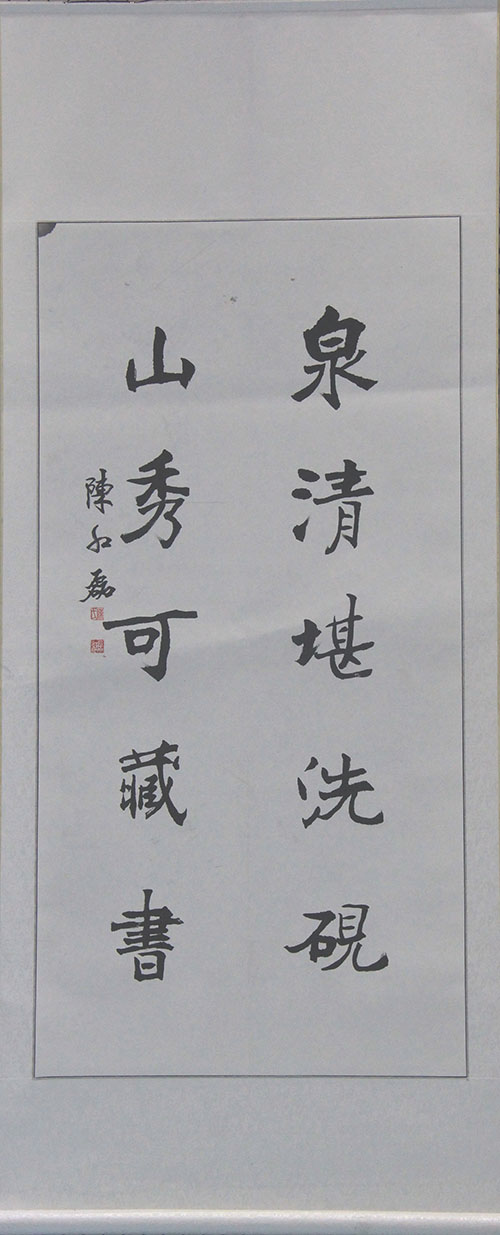 泉清堪洗硯
山秀可藏書
陳

磊